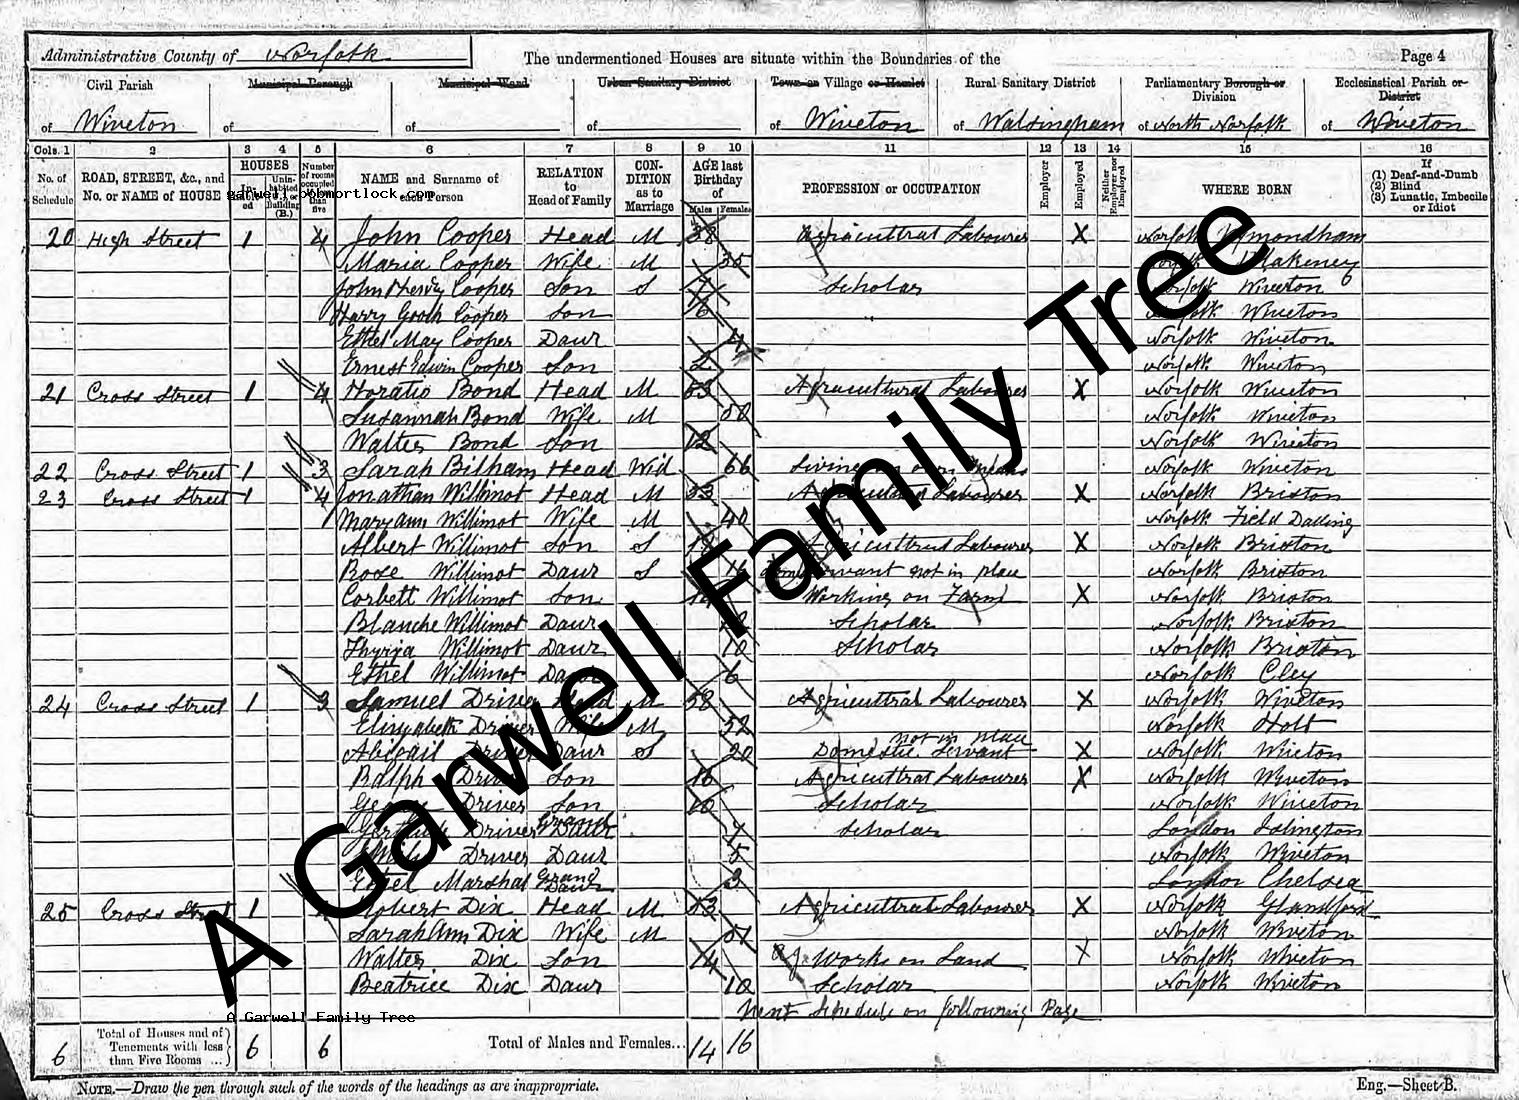 Administrative County of Norfolk
The undermentioned Houses are situate within the Boundaries of the
Page 4
Civil Parish of Wiveton
Municipal Borough of
Municipal Ward of
Urban Sanitary District of
Town or Village or Hamlet of Wiveton
Rural Sanitary District of Walsingham
Parliamentary Borough or Division of North Norfolk
Ecclesiastical Parish or District of Wiveton
Cols. 1 2 3 4 5 6 7 8 9 10 11 12 13 14 15 16
No. of Schedule
ROAD, STREET, &c., and No. or NAME of HOUSE
HOUSES
In-habited
Unin-habited Building (B.)
Number of rooms occupied if less than five
NAME and Surname of each Person
RELATION to Head of Family
CON-DITION as to Marriage
AGE last Birthday of
Males Females
PROFESSION or OCCUPATION
Employer
Employed
Neither Employer nor Employed
WHERE BORN
If
(1) Deaf-and-Dumb
(2) Blind
(3) Lunatic, Imbecile or Idiot
garwell.bobmortlock.com
20 High Street 1 4 John Cooper Head M 38 Agricultral Labourer X Norfolk Wymondham
Maria Cooper Wife M 35 Norfolk Blakeney
John Henry Cooper Son S 7 Scholar Norfolk Wiveton
Harry Gooch Cooper Son 6 Norfolk Wiveton
Ethel May Cooper Daur 4 Norfolk Wiveton
Ernest Edwin Cooper Son 2 Norfolk Wiveton
21 Cross Street 1 4 Horatio Bond Head M 53 Agricultural Labourer X Norfolk Wiveton
Susannah Bond Wife M 50 Norfolk Wiveton
Walter Bond Son 12 Norfolk Wiveton
22 Cross Street 1 3 Sarah Bilham Head Wid 66 Living on own means Norfolk Wiveton
23 Cross Street 1 4 Jonathan Willimot Head M 53 Agricultral Labourer X Norfolk Briston
Mary Ann Willimot Wife M 40 Norfolk Field Dalling
Albert Willimot Son S 18 Agricultral Labourer X Norfolk Briston
Rose Willimot Daur S 16 Servant not in place Norfolk Briston
Corbett Willimot Son 14 Working on Farm X Norfolk Briston
Blanche Willimot Daur Scholar Norfolk Briston
Thyrza Willimot Daur 10 Scholar Norfolk Briston
Ethel Willimot Daur 6 Norfolk Cley
24 Cross Street 1 3 Samuel Driver Head M 58 Agricultral Labourer X Norfolk Wiveton
Elizabeth Driver Wife M 52 Norfolk Holt
Abigail Driver Daur S 20 Domestic Servant not in place X Norfolk Wiveton
Ralph Driver Son 16 Agricultral Labourer X Norfolk Wiveton
George Driver Son 10 Scholar Norfolk Wiveton
Gertrude Driver Grand Daur 7 Scholar London Islington
Driver Daur 5 Norfolk Wiveton
Ethel Marshal Grand Daur 3 London Chelsea
25 Cross Street 1 Robert Dix Head M 53 Agricultral Labourer X Norfolk Glandford
Sarah Ann Dix Wife M 51 Norfolk Wiveton
Walter Dix Son 14 Ag. Works on Land X Norfolk Wiveton
Beatrice Dix Daur 10 Scholar Norfolk Wiveton
Next Schedule on following Page
A Garwell Family Tree
A Garwell Family Tree
6 Total of Houses and of Tenements with less than Five Rooms ... 6 6 Total of Males and Females... 14 16
NOTE.—Draw the pen through such of the words of the headings as are inappropriate.
Eng.—Sheet B.